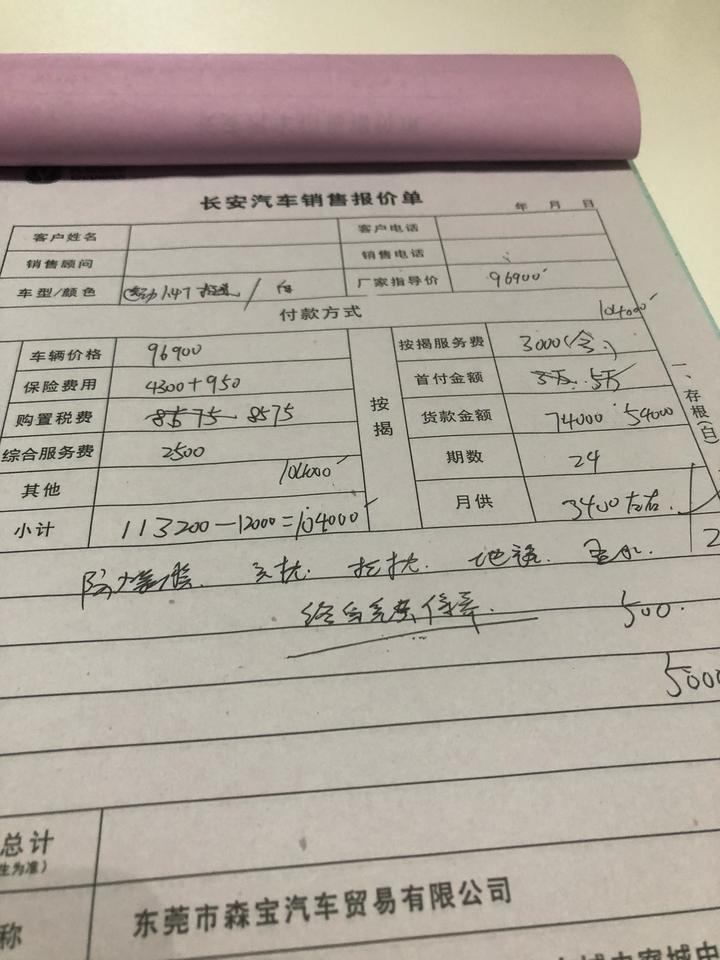 长安汽车销售报价单
年 月 日
客户姓名 客户电话
销售顾问 销售电话
车型/颜色 逸动1.4T / 白 厂家指导价 96900
付款方式 104000
车辆价格 96900 按揭服务费 3000(含)
保险费用 4300+950 首付金额 3万 5万
购置税费 8575 8575 按揭 货款金额 74000 54000
综合服务费 2500 期数 24
其他 104000
月供 3400左右
小计 113200-12000=104000
一、存根(白)
防爆膜. 地毯.
终身免费保养. 500.
5000
总计
生为准)
称 东莞市森宝汽车贸易有限公司